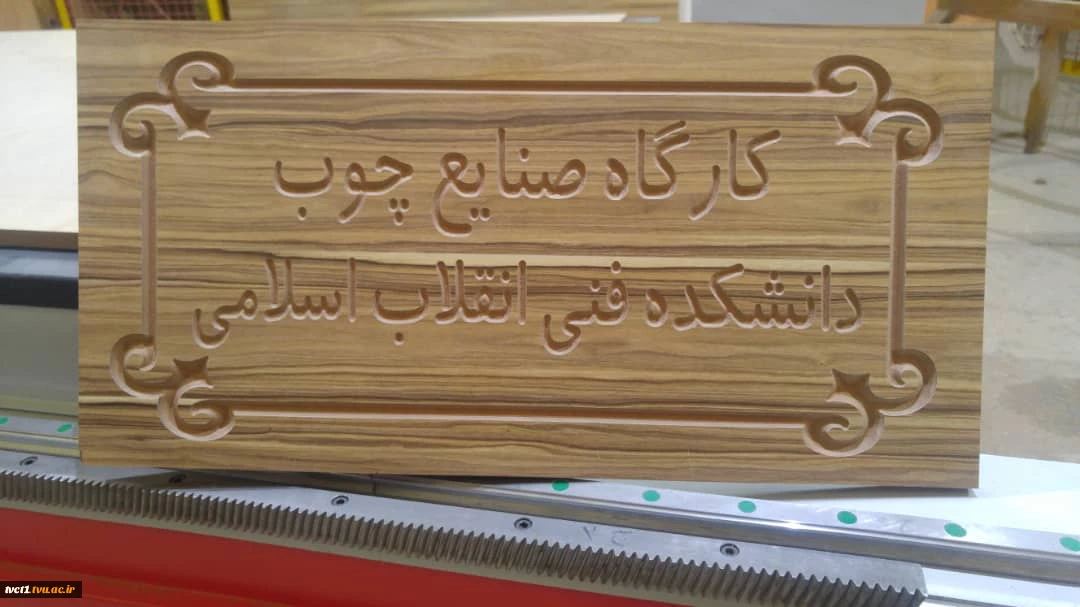 کارگاه صنایع چوب
دانشکده فنی انقلاب اسلامی
tvct1.tvu.ac.ir